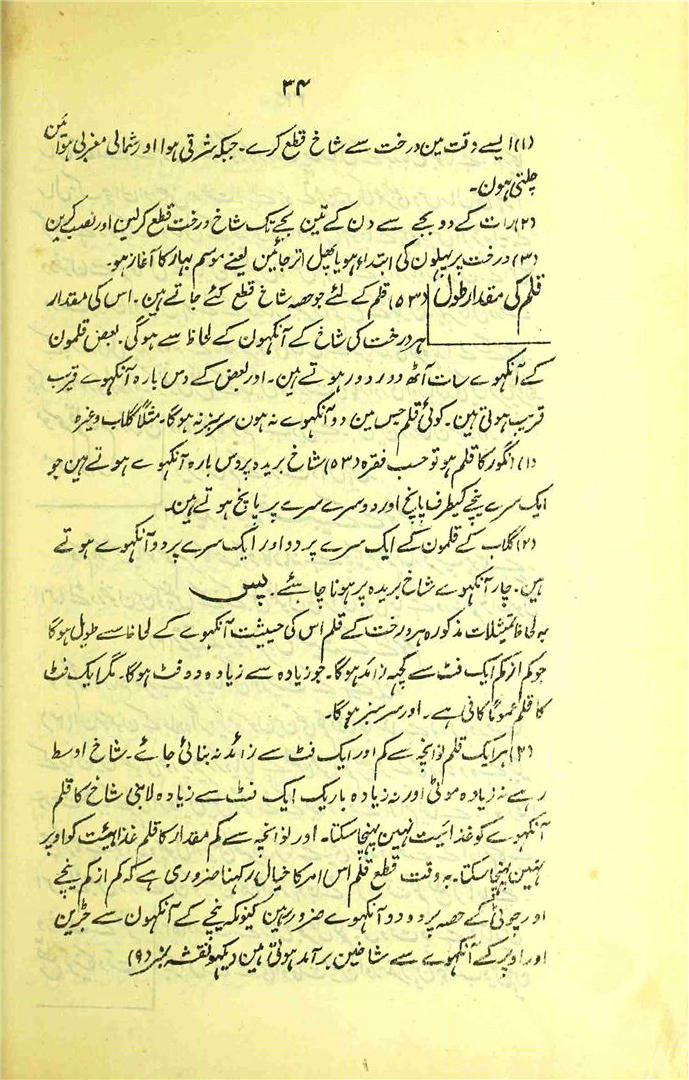 ۳۴
(۱) ایسے وقت مین درخت سے شاخ قطع کرے۔ جبکہ شرقی ہوا اور شمالی مغربی ہوائین
چلتی ہون۔
(۲) رات کے دو بجے سے دن کے تین بجے تک شاخ درخت قطع کرلین اور نصب کرین
(۳) درخت پر پہلون کی ابتداء ہو یا پھل اتر جائین یعنے موسم بہار کا آغاز ہو۔
قلم کی مقدار طول (۵۳) قلم کے لئے جو حصہ شاخ قطع کئے جاتے ہین۔ اس کی مقدار
ہر درخت کی شاخ کے آنکہون کے لحاظ سے ہوگی۔ بعض قلمون
کے آنکہوے سات آٹھ دور دور ہوتے ہین۔ اور بعض کے دس بارہ آنکہوے قریب
قریب ہوتی ہین۔ کوئی قلم جس مین دو آنکہوے نہ ہون سرسبز نہ ہوگا۔ مثلاً گلاب وغیرہ
(۱) انگور کا قلم ہو تو حسب فقرہ (۵۳) شاخ بریدہ پر دس بارہ آنکہوے ہوتے ہین جو
ایک سرے نیچے کیطرف پانچ اور دوسرے سرے پر پانچ ہوتے ہین۔
(۲) گلاب کے قلمون کے ایک سرے پر دو اور ایک سرے پر دو آنکہوے ہوتے
ہین۔ چار آنکہوے شاخ بریدہ پر ہونا چاہئے۔ پس
بہ لحاظ تمثیلات مذکورہ ہر درخت کے قلم اس کی حیثیت آنکہوے کے لحاظ سے طویل ہوگا
جو کم از کم ایک فٹ سے کچہ زائد ہوگا۔ جو زیادہ سے زیادہ دو فٹ ہوگا۔ مگر ایک فٹ
کا قلم عموماً کافی ہے۔ اور سرسبز ہوگا۔
(۳) ہر ایک قلم نو انچہ سے کم اور ایک فٹ سے زائد نہ بنائی جائے۔ شاخ اوسط
رہے نہ زیادہ موٹی اور نہ زیادہ باریک ایک فٹ سے زیادہ لابنی شاخ کا قلم
آنکہوے کو غذائیت نہین پہنچا سکتا۔ اور نو انچہ سے کم مقدار کا قلم غذائیت کو اوپر
نہین پہنچا سکتا۔ بہ وقت قطع قلم اس امر کا خیال رکہنا ضروری ہے کہ کم از کم نیچے
اور چوٹی کے حصہ پر دو دو آنکہوے ضرور ہین کیونکہ نیچے کے آنکہون سے جڑین
اور اوپر کے آنکہوے سے شاخین برآمد ہوتی ہین دیکہو نقشہ نمبر (۹)